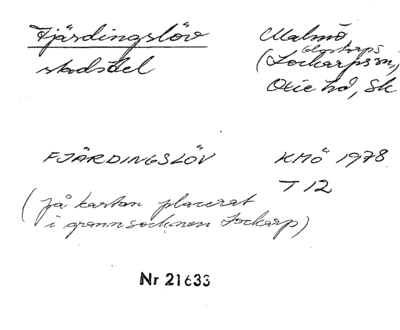 Fjärdingslöv Malmö
Glostorps
stadsdel (Lockarps sn,)
Oxie hd, Sk
FJÄRDINGSLÖV KMÖ 1978
T 12
(på kartan placerat
i grannsocknen Lockarp)
Nr 21633